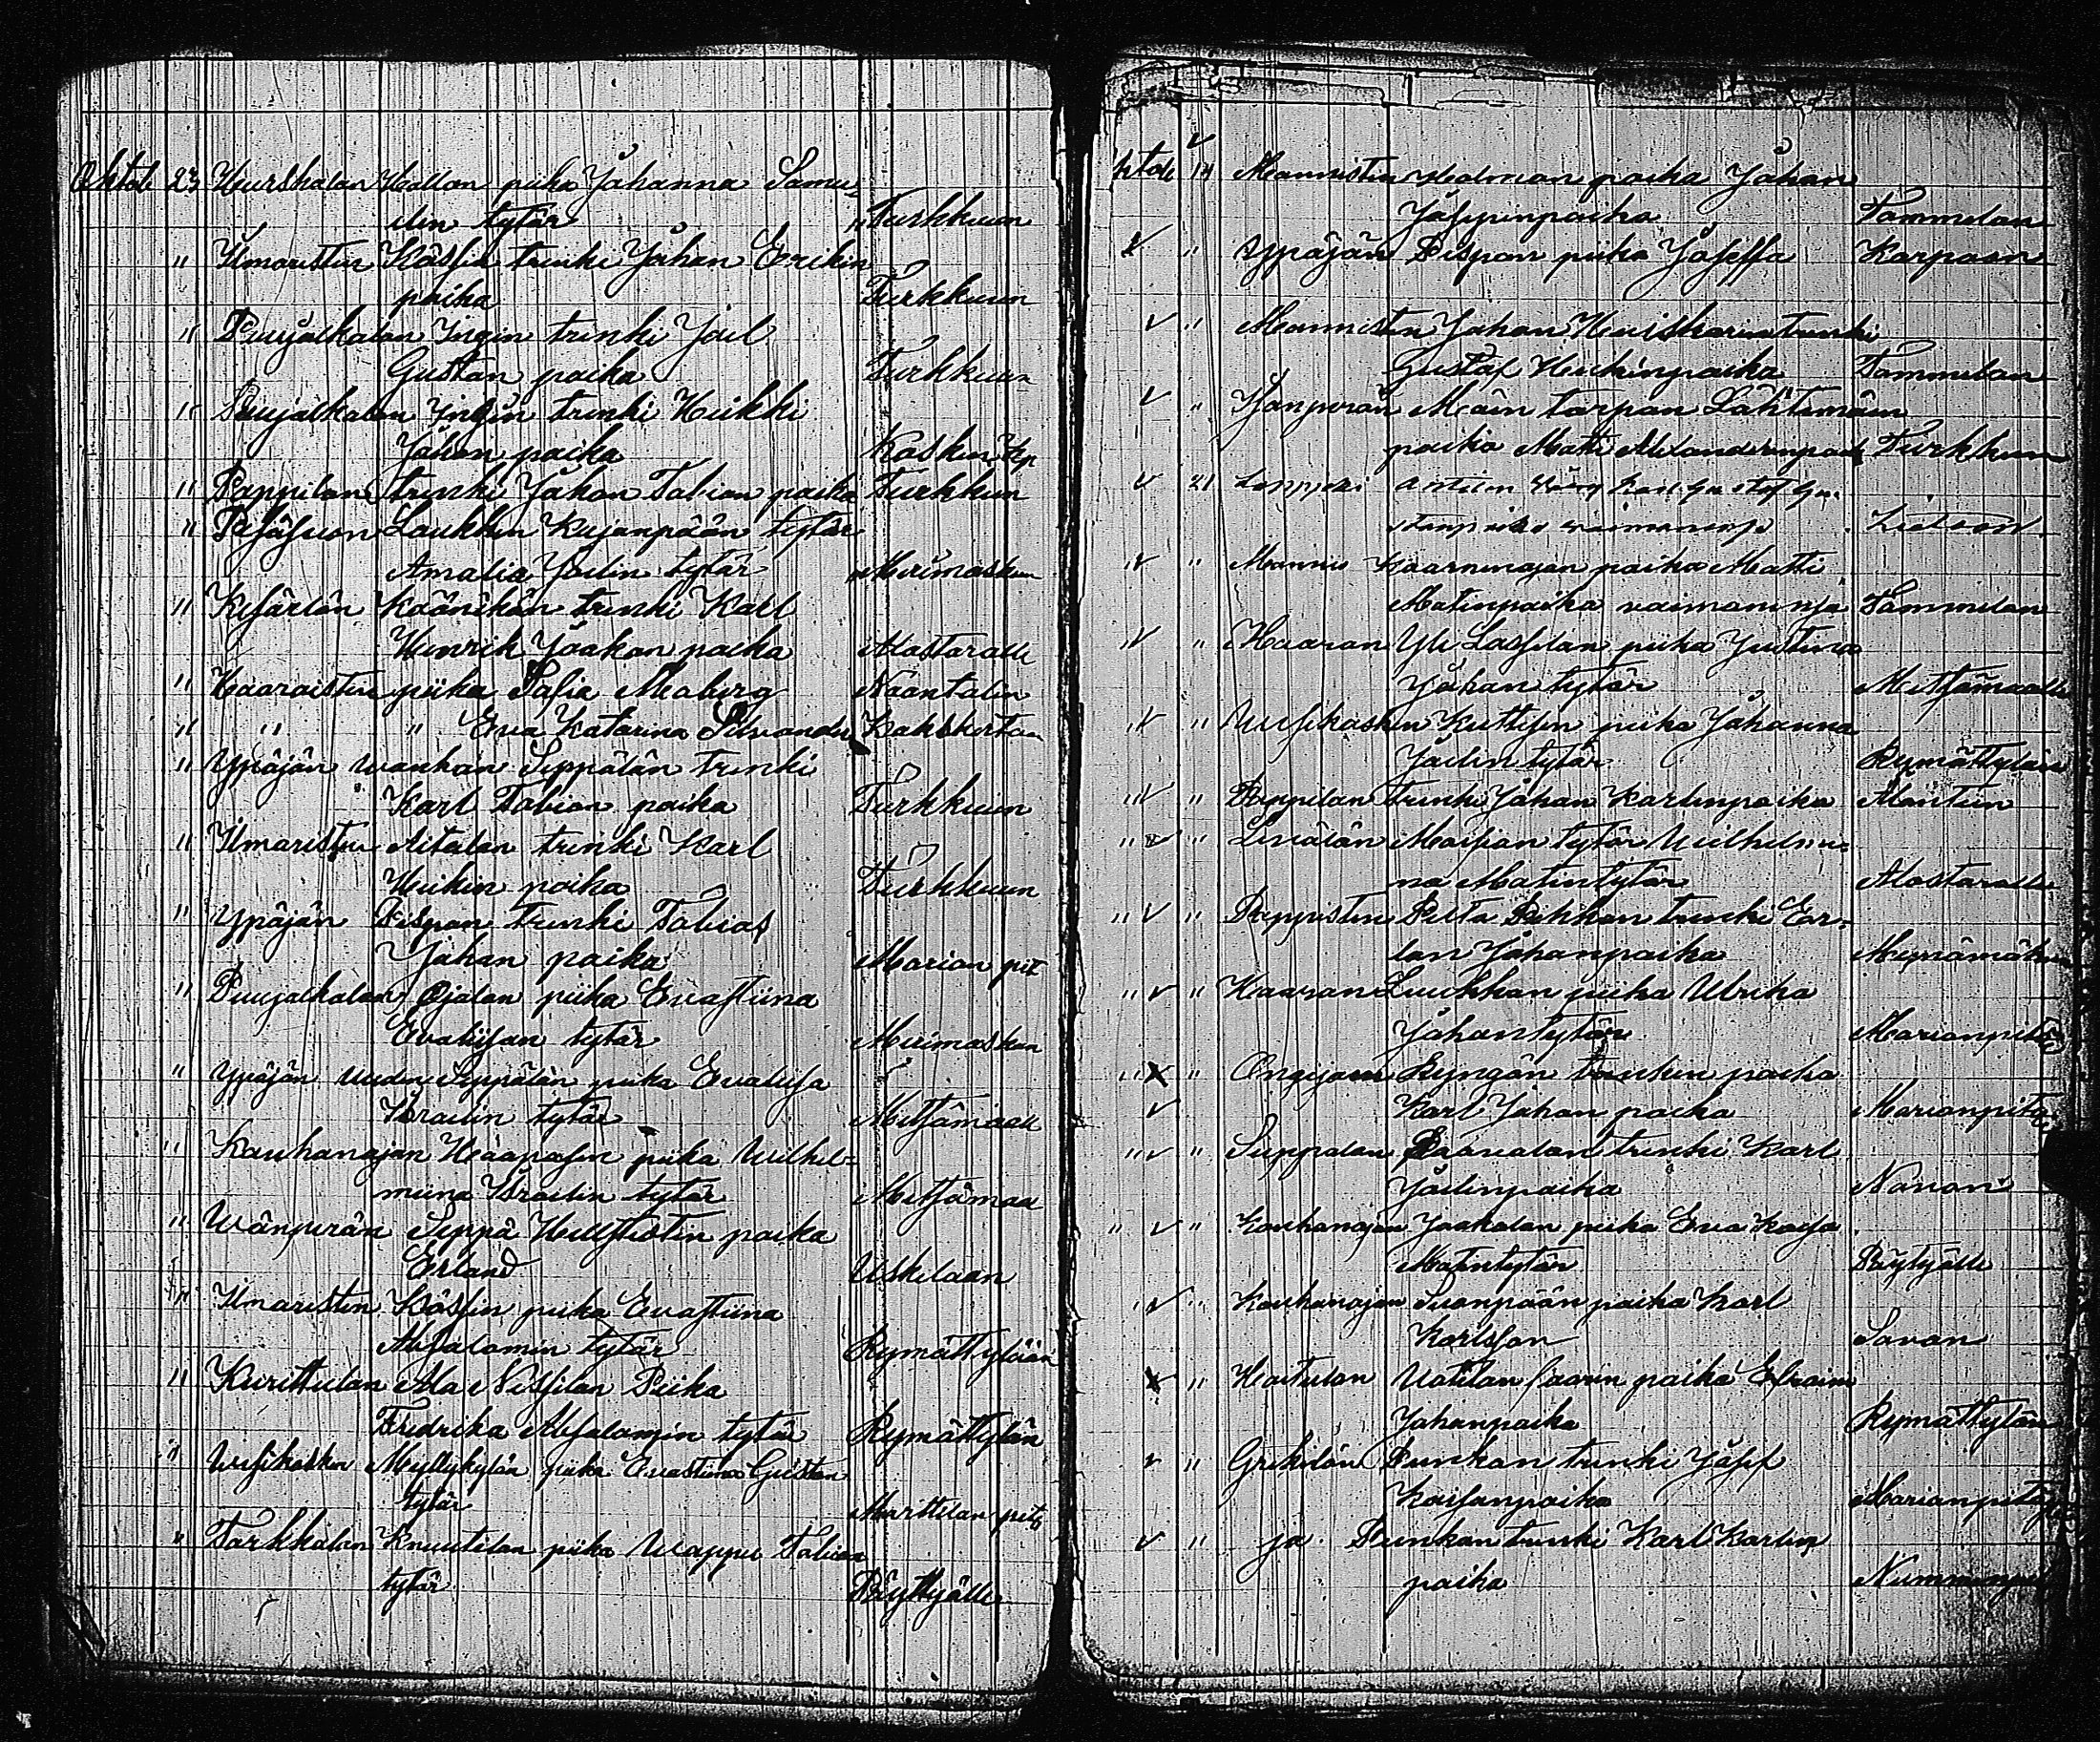 Oktob 23 Kurskalan Hallon piika Johanna Samu-
elin tytär " Turkkuun
" Ilmaristen Kässin trenki Johan Erikin
poika Turkkuun
" Puujalkalan Yngin trenki Joel
Gustan poika Turkkuun
" Puujalkalan Yngin trenki Heikki
Johan poika Kosken Kp
" Pappilan trenki Johan Tobian poika Turkkuun
" Laukken Kujanpään tytär
Amalia Joelin tytär Merimaskun
" Kejärlän Käänikän trenki Karl
Henrik Jaakon poika Alastaralle
" Haaroisten piika Sofia Moberg Naantalin
" " " Eva Katarina Silvander Kakskertan
" Ypäjän wanhan Seppälän trenki
Karl Tobian poika Turkkuun
" Ilmaristen Aitalan trenki Karl
Heikin poika Turkkuun
" Ypäjän Pispan trenki Tobias
Johan poika Marian pit
" Puujalkalan Ojalan piika Evastiina
Evaliisan tytär Merimaskun
" Ypäjän uuden Seppälän piika Evaliisa
Israelin tytär Metsämaalle
" Kauhanojan Haapasen piika Wilhel-
miina Israelin tytär Metsämaa
" Wänperän Seppä Hellstetin poika
Erland Uskelaan
" Ilmaristen Kässin piika Evastiina
Absalomin tytär Rymättylään
" Kurittulan Ala Nissilan Piika
Fredrika Absalomin tytär Rymättylän
" Uusikasken Myllykylän piika Evastiina Gustan
tytär Marttilan pit
" Tarkkalan Knuutilan piika Wappu Tobian
tytär Pöyttyälle
ktob 14 Mannisten Holman poika Johan
Josepinpoika Tammelan
" Ypäjän Pispan piika Joseffa Karjaan
" Mannisten Johan Heiskarin trenki
Gustaf Heikinpoika Tammelan
" Isonperän Mäen torpan Lähtemäen
poika Matti Alexanderinpoik Turkkuun
21
" Mannis Kaarninojan poika Matti
Matinpoika vaimoninsa Tammelan
" Haaran Yli Lassilan piika Justina
Johan tytär Metsämaalle
" Uusikasken Kuttisen piika Johanna
Joelin tytär Rymättylään
" Pappilan trenki Johan Karlinpoika
" Levälän Maisian tytär Wilhelmi-
na Matintytär Alastaralle
" Pappisten Pelta Pekkan trenki Er-
lan Johanpoika Mynämäkeen
" Haaran Luukkan piika Ulrika
Johantytär Marianpit
" Ongejoen Ryngän trenkin poika
Karl Johan poika Marianpit
" Seppalan Paavalan trenki Karl
Joelinpoika Nauvon
" Kauhanojan Jaakolan piika Eva Kaisa
Matintytär Pöytyälle
" Kauhanojan Suonpään poika Karl
Karlsson Sauvon
" Haitulan Uotilan Saarin poika Efraim
Johanpoika Rymättylän
" Grekilän Punkan trenki Josef
Kaisanpoika Marianpit
" ja Punkan trenki Karl Karlin
poika Nummenp